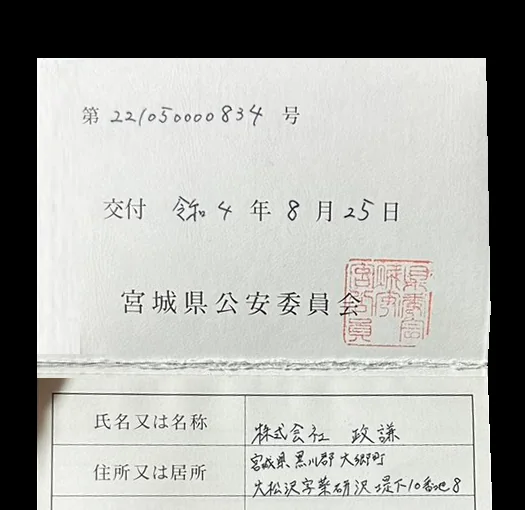 第 221050000834 号
交付 令和 4 年 8 月 25 日
宮城県公安委員会
氏名又は名称 株式会社 政謙
住所又は居所 宮城県黒川郡大郷町
大松沢字薬研沢堤下10番地8